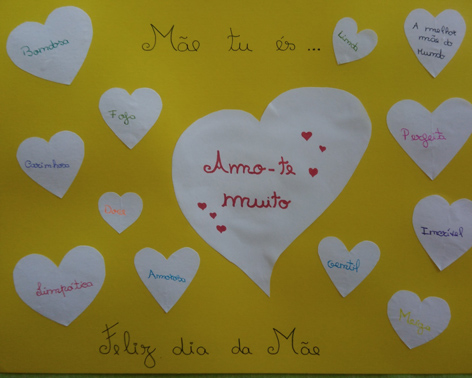 Mãe tu és ...
Bondosa
Linda
A melhor
mãe do
Mundo
Fofa
Perfeita
Carinhosa
Amo-te
muito
Doce
Incrível
Simpática
Amorosa
Gentil
Meiga
Feliz dia da Mãe